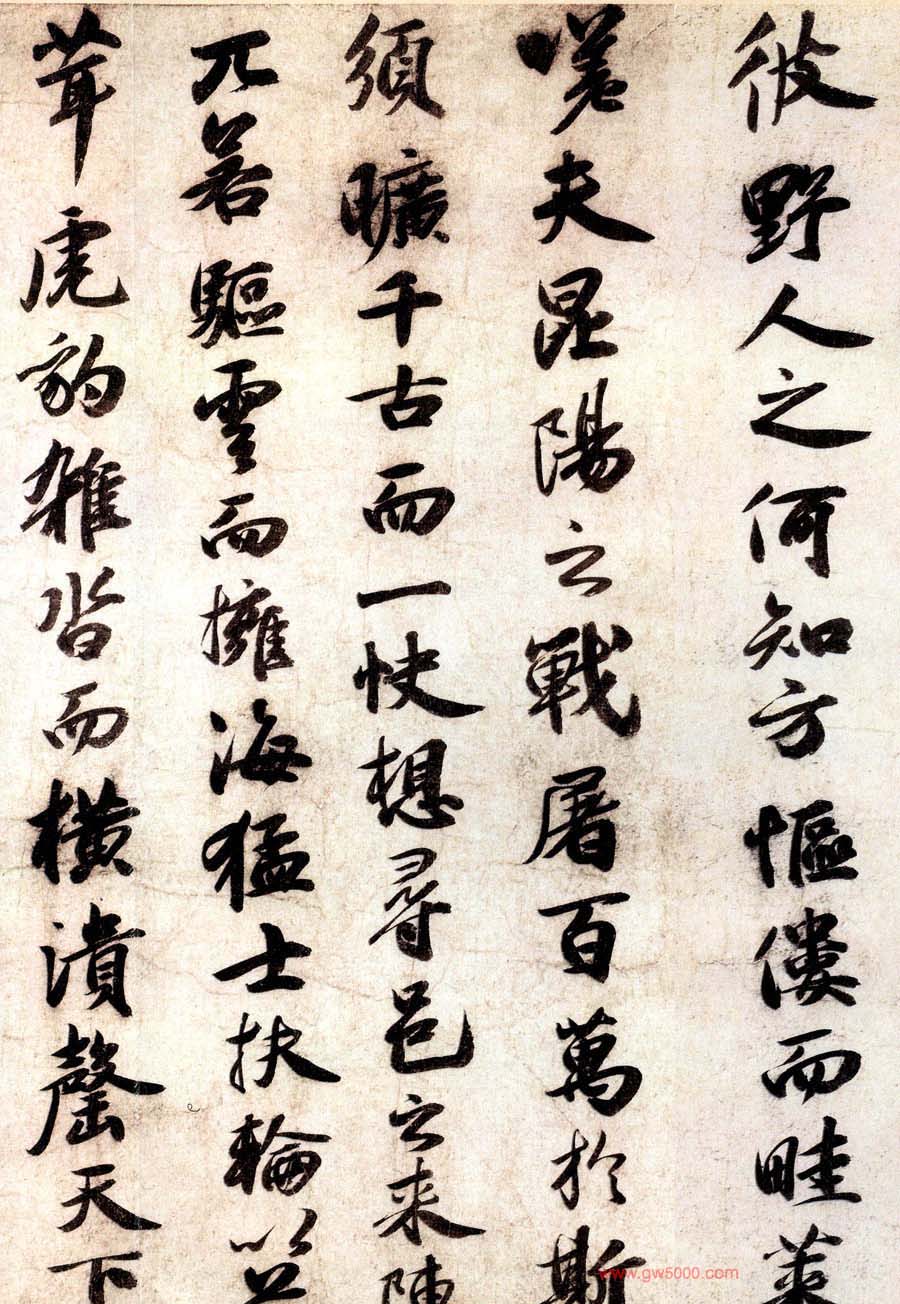 彼野人之何知方傴僂而畦菜
嗟夫昆陽之戰屠百萬於斯
須曠千古而一快想尋邑之来陣
兀若驅雲而擁海猛士扶輪以
茸虎豹雜沓而橫潰罄天下
www.gw5000.com